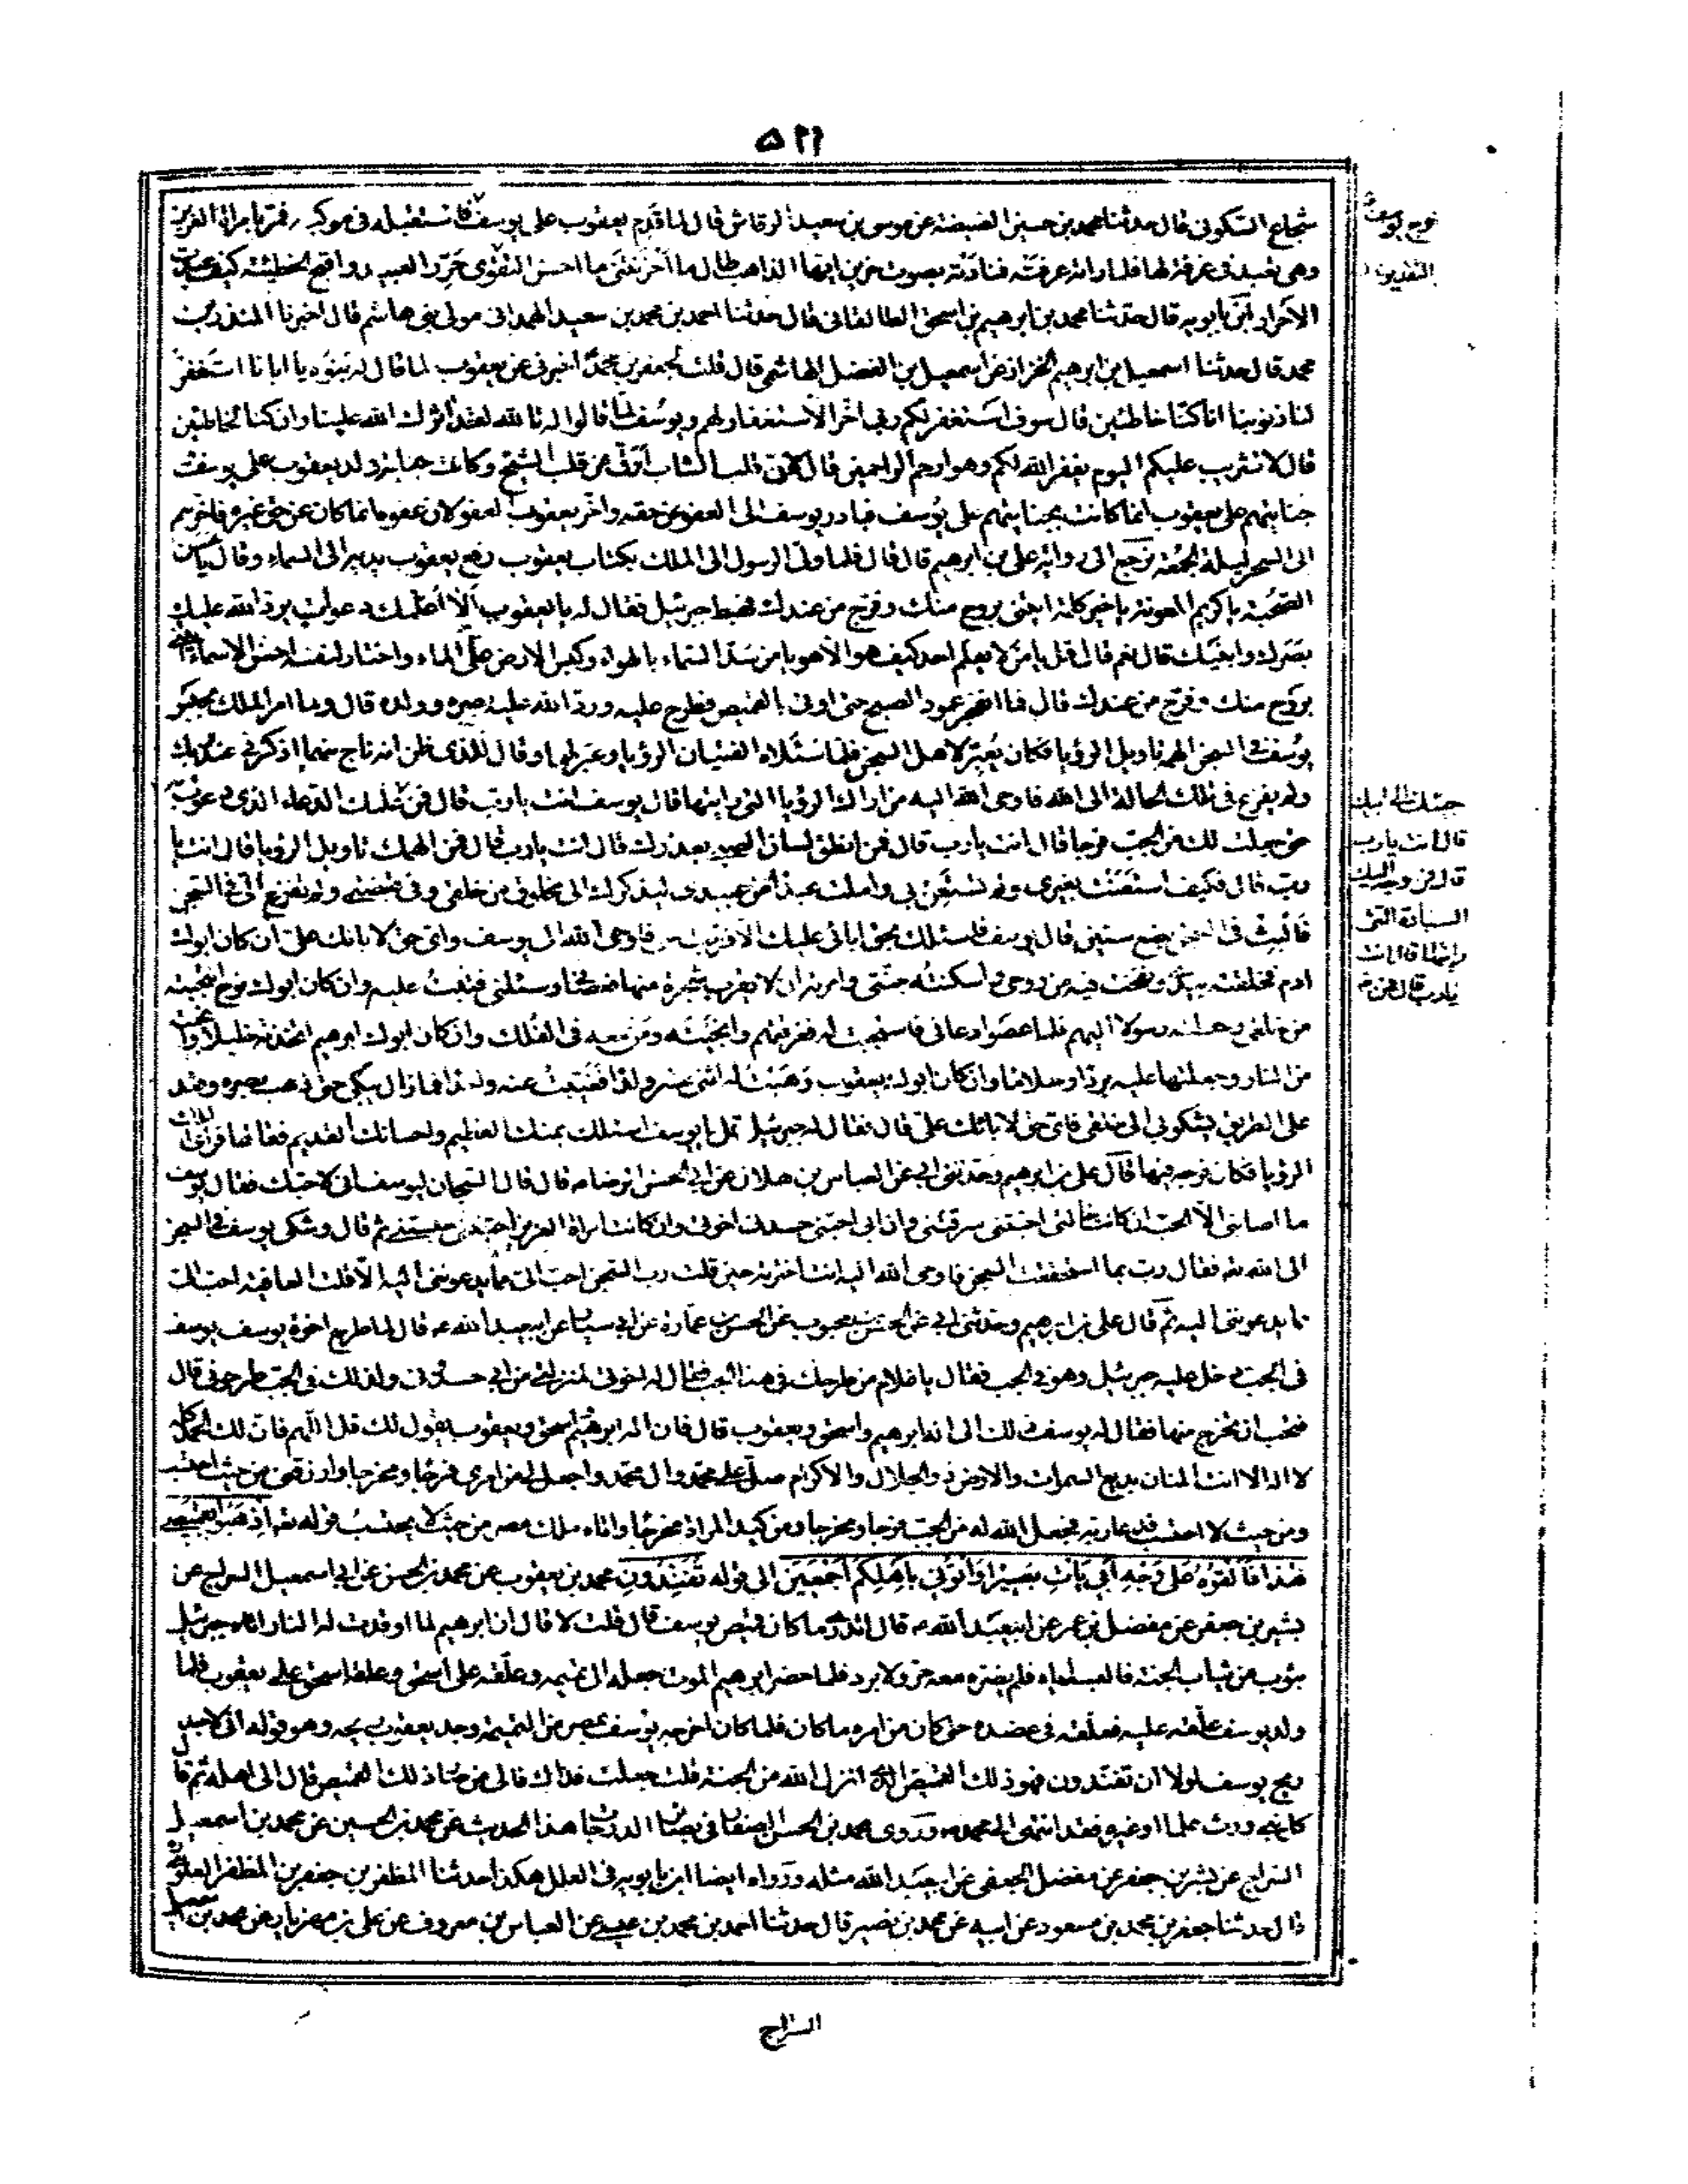 ٥٢١
شجاع السكونى قال حدثنا محمد بن حسين عن موسى بن سعيد الرقاشى قال لما قدم يعقوب على يوسف فاستقبله فى موكبه فمر بامراة العزيز
وهى تعبد فى غرفة لها فلما راته عرفته فنادته بصوت حزين ايها الذاهب طال ما احزنتنى ما احسن التقوى حرر العبيد واقبح الخطيئة كيف عبدت
الاحرار ابن بابويه قال حدثنا محمد بن ابرهيم بن اسحق الطالقانى قال حدثنا احمد بن محمد بن سعيد الهمدانى مولى بنى هاشم قال اخبرنا المنذر بن
محمد قال حدثنا اسمعيل بن ابرهيم الخزاز عن اسمعيل بن الفضل الهاشمى قال قلت لجعفر بن محمد اخبرنى عن يعقوب لما قال له بنوه يا ابانا استغفر
لنا ذنوبنا انا كنا خاطئين قال سوف استغفر لكم ربى اخر الاستغفار لهم ويوسف لما قالوا له تالله لقد اثرك الله علينا وان كنا لخاطئين
قال لا تثريب عليكم اليوم يغفر الله لكم وهو ارحم الراحمين قال لان قلب الشاب ارق من قلب الشيخ وكانت جناية ولد يعقوب على يوسف
جنايتهم على يعقوب انما كانت بجنايتهم على يوسف فبادر يوسف الى العفو عن حقه واخر يعقوب العفو لان عفوه انما كان عن حق غيره فاخرهم
الى السحر ليلة الجمعة نرجع الى رواية على بن ابرهيم قال قال فلما ولى الرسول الى الملك بكتاب يعقوب رفع يعقوب يديه الى السماء وقال يا حسن
الصحبة يا كريم المعونة يا خير كله ائتنى بروح منك وفرج من عندك فهبط جبرئيل فقال له يا يعقوب الا اعلمك دعوات يرد الله عليك
بصرك وابنيك قال نعم قال قل يا من لا يعلم احد كيف هو الا هو يا من سد السماء بالهواء وكبس الارض على الماء واختار لنفسه احسن الاسماء ائتنى
بروح منك وفرج من عندك قال فما انفجر عمود الصبح حتى اوتى بالقميص فطرح عليه ورد الله عليه بصره وولده قال ولما امر الملك بحبس
يوسف فى السجن الهمه تاويل الرؤيا فكان يعبر لاهل السجن فلما سئلاه الفتيان الرؤيا وعبر لهما وقال للذى ظن انه ناج منهما اذكرنى عند ربك
ولم يفزع فى تلك الحالة الى الله فاوحى الله اليه من اراك الرؤيا التى رايتها قال يوسف انت يا رب قال فمن علمك الدعاء الذى دعوت به
حتى جعلت لك من الجب فرجا قال انت يا رب قال فمن انطق لسان الصبى بعذرك قال انت يا رب قال فمن الهمك تاويل الرؤيا قال انت يا
رب قال فكيف استغثت بغيرى ولم تستعن بى واملت عبدا من عبيدى ليذكرك الى مخلوق من خلقى وفى قبضتى ولم تفزع الى فى السجن
فالبث فى السجن بضع سنين قال يوسف فاسئلك بحق ابائى عليك الا فرجت فاوحى الله الى يوسف واى حق لابائك على ان كان ابوك
ادم فخلقته بيدى ونفخت فيه من روحى واسكنته جنتى وامرته ان لا يقرب شجرة منها فعصانى وسئلنى فتبت عليه وان كان ابوك نوح انتجبته
من خلقى وجعلته رسولا اليهم فلما عصوا دعانى فاستجبت له فغرقتهم وانجيته ومن معه فى الفلك وان كان ابوك ابرهيم اتخذته خليلا وانجيته
من النار وجعلتها عليه بردا وسلاما وان كان ابوك يعقوب وهبت له اثنى عشر ولدا فغيبت عنه ولدا فما زال يبكى حتى ذهب بصره وقعد
على الطريق يشكونى الى خلقى فاى حق لابائك على قال فقال له جبرئيل قل يا يوسف اسئلك بمنك العظيم واحسانك القديم فقالها فراى الملك
الرؤيا فكان فرجه فيها قال على بن ابرهيم وحدثنى ابى عن العباس بن هلال عن ابى الحسن الرضا قال قال السجان ليوسف انى لاحبك فقال يوسف
ما اصابنى الا الحب ان كانت خالتى احبتنى سرقتنى وان ابى احبنى حسدنى اخوتى وان كانت امراة العزيز احبتنى حبستنى ثم قال وشكى يوسف فى السجن
الى الله فقال رب بما استحققت السجن فاوحى الله اليه انت اخترته حين قلت رب السجن احب الى مما يدعوننى اليه الا قلت العافية احب الى
مما يدعوننى اليه ثم قال على بن ابرهيم وحدثنى ابى عن الحسن بن محبوب عن الحسن بن عمارة عن ابى سيار عن ابى عبد الله قال لما طرح اخوة يوسف يوسف
فى الجب دخل عليه جبرئيل وهو فى الجب فقال يا غلام من طرحك فى هذا الجب فقال له اخوتى لمنزلتى من ابى حسدونى ولذلك فى الجب طرحونى قال
فتحب ان تخرج منها فقال له يوسف ذلك الى اله ابرهيم واسحق ويعقوب قال فان اله ابرهيم واسحق ويعقوب يقول لك قل اللهم فان لك الحمد كله
لا اله الا انت المنان بديع السموات والارض ذو الجلال والاكرام صل على محمد وال محمد واجعل لى من امرى فرجا ومخرجا وارزقنى من حيث احتسب
ومن حيث لا احتسب فدعا ربه فجعل الله له من الجب فرجا ومخرجا ومن كيد المراة مخرجا واتاه ملك مصر من حيث لا يحتسب قوله تعالى اذهبوا بقميصى
هذا فالقوه على وجه ابى يات بصيرا واتونى باهلكم اجمعين الى قوله تفندون محمد بن يعقوب عن محمد بن الحسن عن ابى اسمعيل السراج عن
بشير بن جعفر عن مفضل بن عمر عن ابى عبد الله قال اتدرى ما كان قميص يوسف قال قلت لا قال ان ابرهيم لما اوقدت له النار اتاه جبرئيل
بثوب من ثياب الجنة فالبسه اياه فلم يضره معه حر ولا برد فلما حضر ابرهيم الموت جعله فى تميمه وعلقه على اسحق وعلقه اسحق على يعقوب فلما
ولد يوسف علقه عليه فعلقه فى عضده حتى كان من امره ما كان فلما كان اخرجه يوسف بمصر من التميمة وجد يعقوب ريحه وهو قوله انى لاجد
ريح يوسف لولا ان تفندون فهو ذلك القميص الذى انزل الله من الجنة قلت جعلت فداك فالى من صار ذلك القميص قال الى اهله ثم قال
كل نبى ورث علما او غيره فقد انتهى الى محمد وروى محمد بن الحسن الصفار فى بصائر الدرجات هذا الحديث عن محمد بن الحسين عن محمد بن اسمعيل
السراج عن بشر بن جعفر عن مفضل الجعفى عن ابى عبد الله مثله ورواه ايضا ابن بابويه فى العلل هكذا حدثنا المظفر بن جعفر بن المظفر العلوى
قال حدثنا جعفر بن محمد بن مسعود عن ابيه عن محمد بن نصير قال حدثنا احمد بن محمد بن عيسى عن العباس بن معروف عن على بن مهزيار عن محمد بن اسمعيل
خرج يوسف
حبك الى ابيك
قال انت يا رب
قال فمن وجه اليك
السيارة التى
رايتها قال انت
يا رب قال فمن
السراج